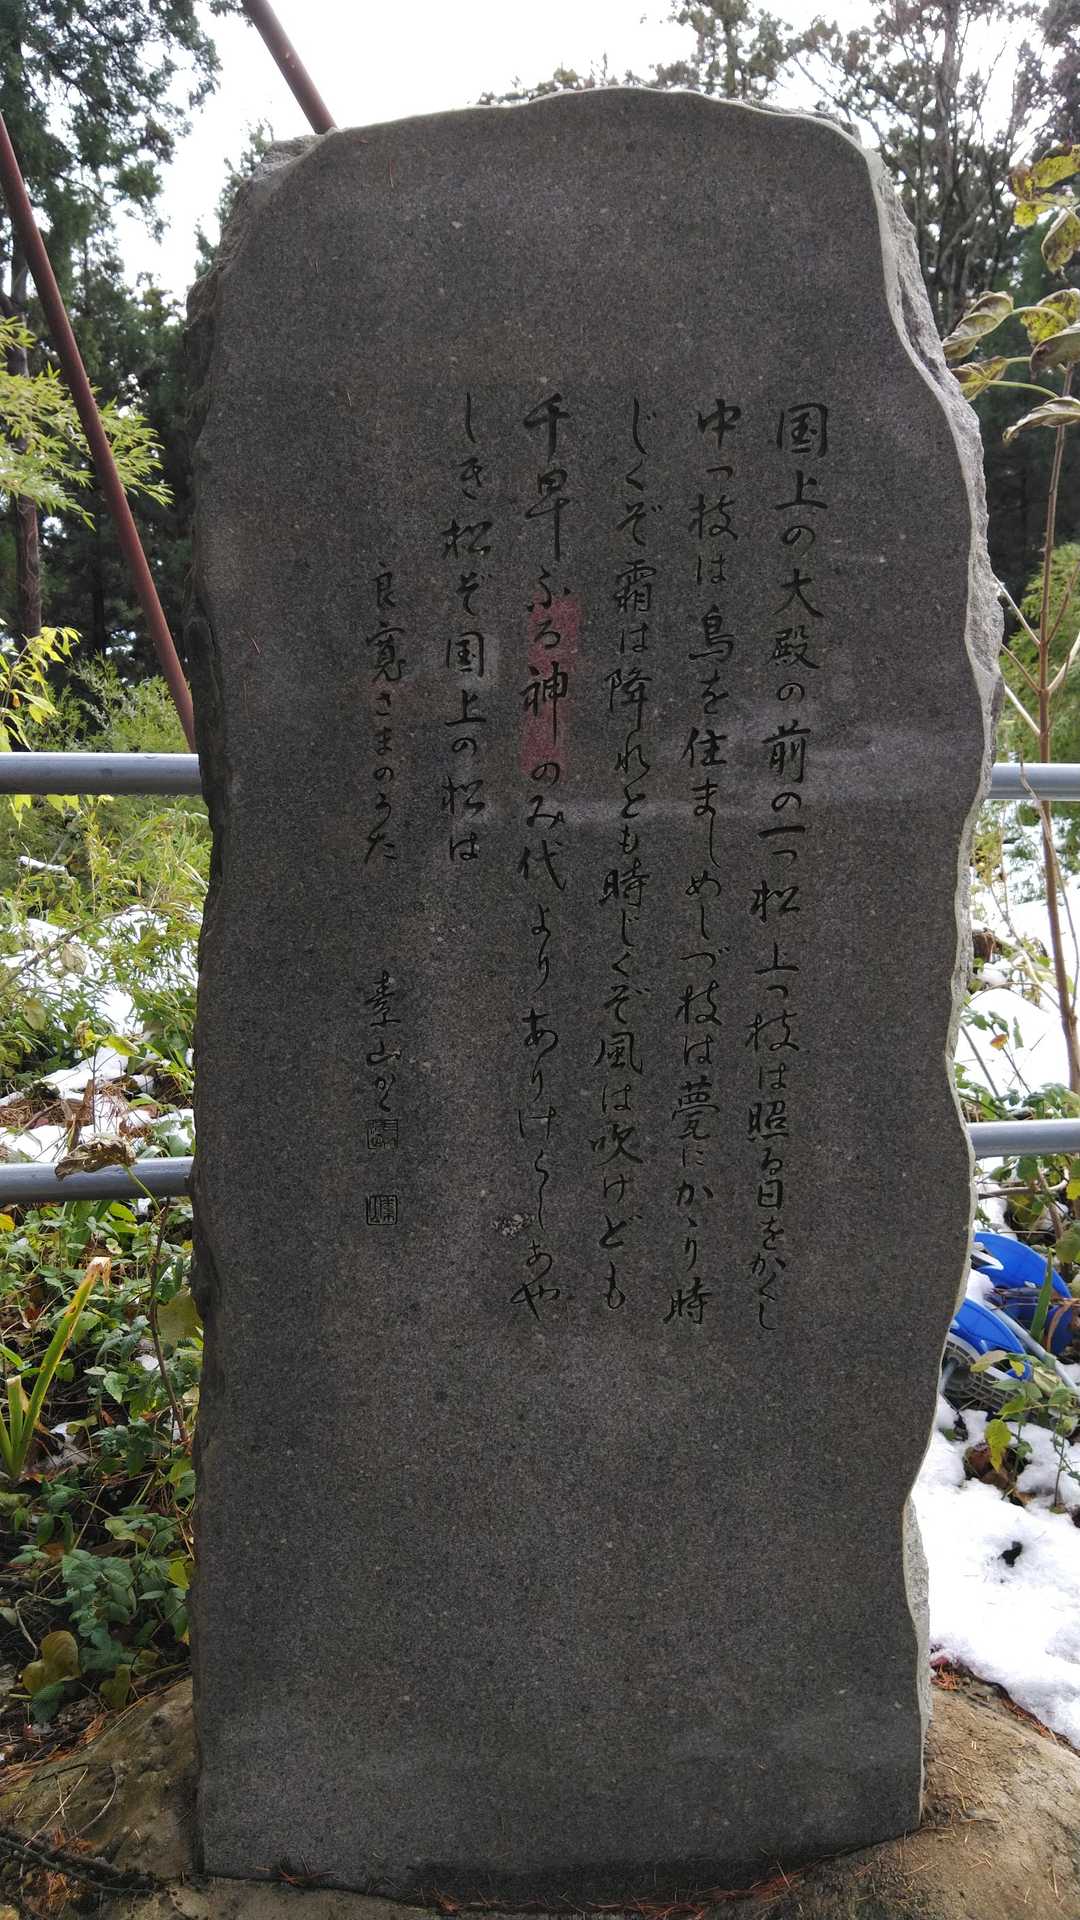 国上の大殿の前の一つ松上つ枝は照る日をかくし
中つ枝は鳥を住ましめしづ枝は甍にかゝり時
じくぞ霜は降れとも時じくぞ風は吹けども
千早ふる神のみ代よりありけらしあや
しき松ぞ国上の松は
良寛さまのうた 素山かく